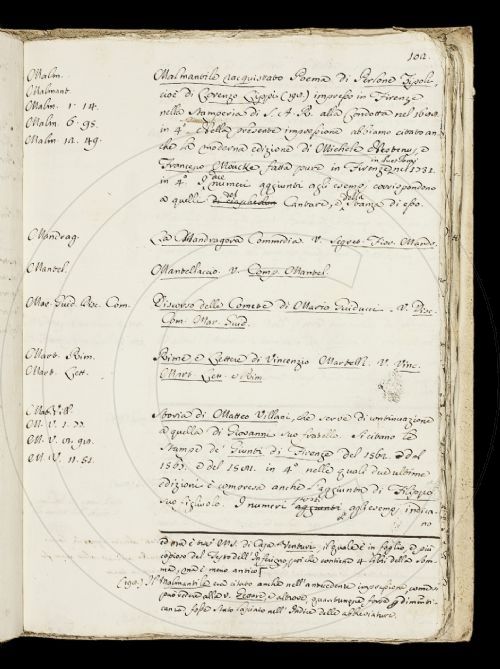 102.
Malm.
Malmant.
Malm. 1. 14.
Malm. 6. 98.
Malm. 12. 49.
Malmantile racquistato Poema di Perlone Zipoli,
cioè di Lorenzo Lippi (190.) impresso in Firenze
nella Stamperia di S. A. S. alla Condotta nel
in 4. Nella presente impressione abbiamo citato an-
che la moderna edizione di Michele Nestenus, e
Francesco Moücke, fatta pure in Firenze nel 1731.
in 4. I numeri aggiunti agli esempj corrispondono
a quelli del Cantare, e della Stanza di esso.
Mandrag.
La Mandragora Commedia. V. Segret. Fior. Mandr.
Mantel.
Mantellaccio. V. Comp. Mantel.
Mar. Guid. Disc. Com.
Discorso delle Comete di Mario Guiducci. V. Disc.
Com. Mar. Guid.
Mart. Rim.
Mart. Lett.
Rime e Lettere di Vincenzio Martelli. V. Vinc.
Mart. Lett. e Rim.
Mat. Vill.
M. V. 1. 22.
M. V. 9. 90.
M. V. 11. 51.
Storia di Matteo Villani, che serve di continuazione
a quella di Giovanni suo fratello. Si citano le
Stampe de' Giunti di Firenze del 1562. e del
e del 1581. in 4.º nelle quali due ultime
edizioni è compresa anche l'aggiunta di Filippo
suo figliuolo. I numeri posti agli esempj indica-
no
ed ora è tra' MS. di Casa Venturi, il quale è in foglio, e più
copioso del Testo dell' perchè contiene 4. libri della
ma, ma è meno antico.
(190.) Il Malmantile era citato anche nell'antecedente impressione, come si
può vedere alla v. e altrove quantunque forse p dimenti-
canza fosse stato lasciato nell'Indice delle abbreviature.